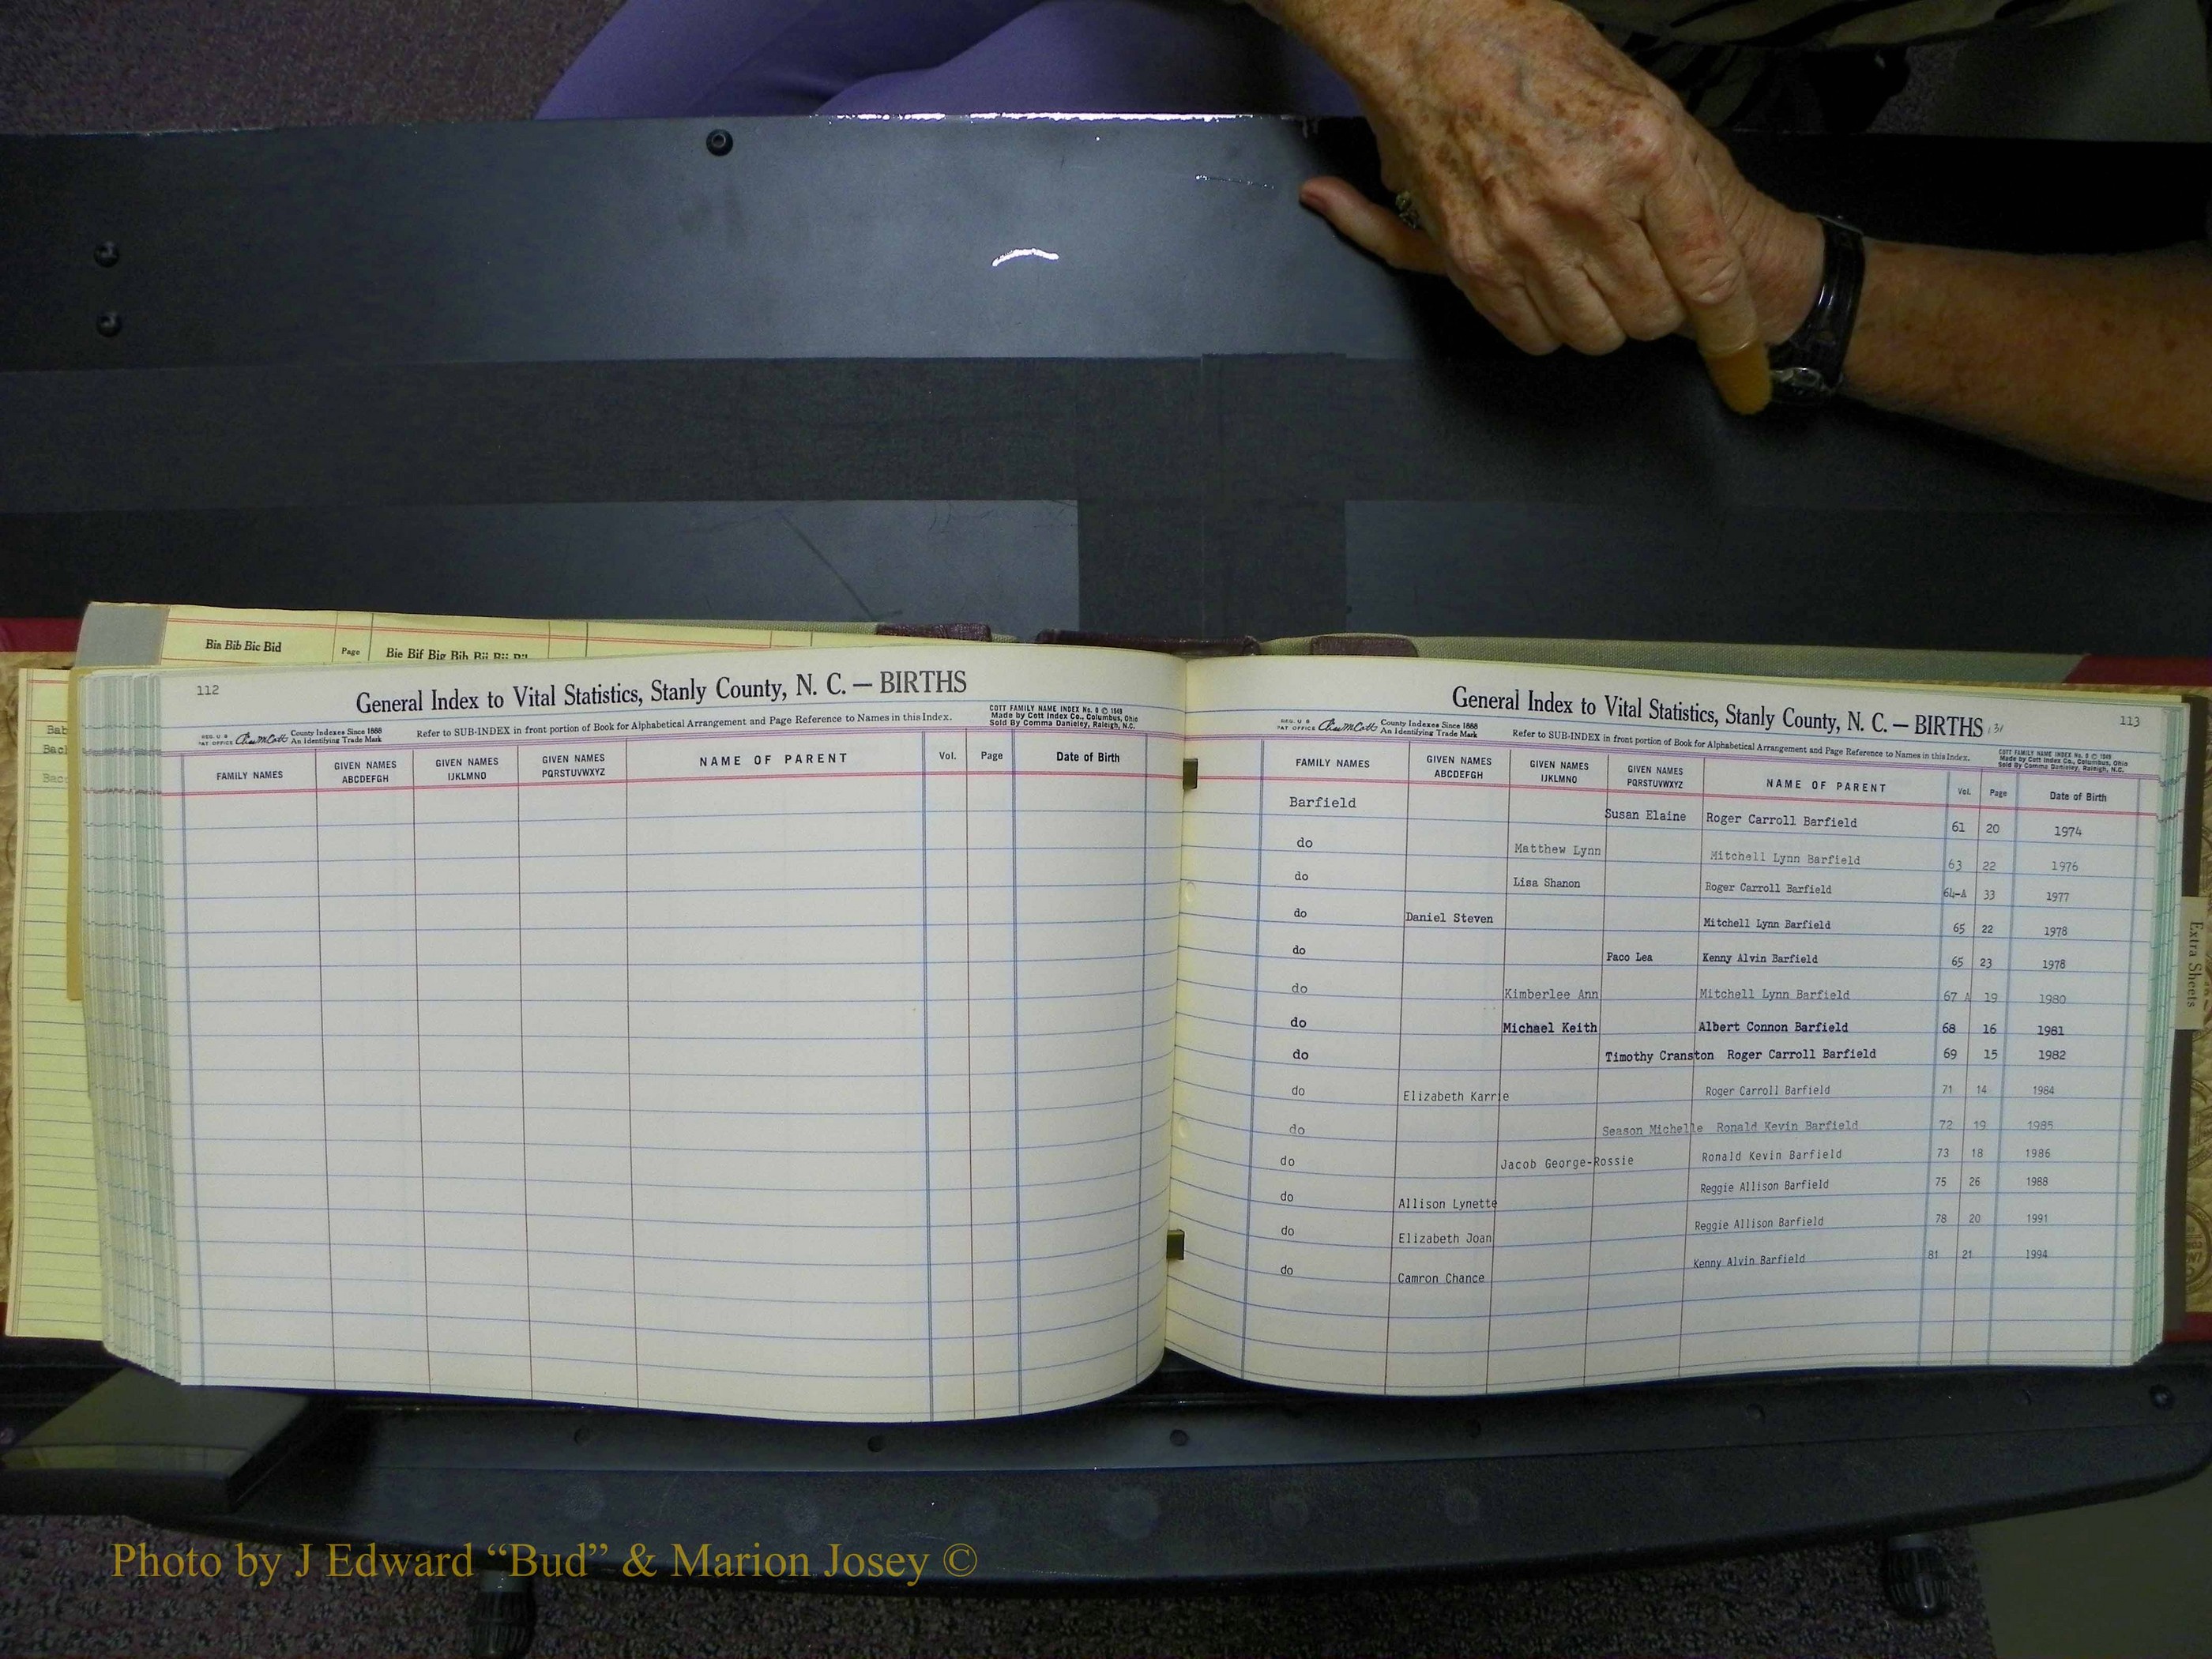 Bia Bib Bic Bid Page Bie Bif Big Bih Bii Bij
Bab
Bach
Bac
112
General Index to Vital Statistics, Stanly County, N. C. — BIRTHS
REG. U S PAT OFFICE County Indexes Since 1888 An Identifying Trade Mark
Refer to SUB-INDEX in front portion of Book for Alphabetical Arrangement and Page Reference to Names in this Index.
COTT FAMILY NAME INDEX No. 8 © 1949
Made by Cott Index Co., Columbus, Ohio
Sold By Comma Danieley, Raleigh, N.C.
FAMILY NAMES GIVEN NAMES ABCDEFGH GIVEN NAMES IJKLMNO GIVEN NAMES PQRSTUVWXYZ NAME OF PARENT Vol. Page Date of Birth
113
General Index to Vital Statistics, Stanly County, N. C. — BIRTHS
REG. U S PAT OFFICE County Indexes Since 1888 An Identifying Trade Mark
Refer to SUB-INDEX in front portion of Book for Alphabetical Arrangement and Page Reference to Names in this Index.
COTT FAMILY NAME INDEX No. 8 © 1949
Made by Cott Index Co., Columbus, Ohio
Sold By Comma Danieley, Raleigh, N.C.
FAMILY NAMES GIVEN NAMES ABCDEFGH GIVEN NAMES IJKLMNO GIVEN NAMES PQRSTUVWXYZ NAME OF PARENT Vol. Page Date of Birth
Barfield Susan Elaine Roger Carroll Barfield 61 20 1974
do Matthew Lynn Mitchell Lynn Barfield 63 22 1976
do Lisa Shanon Roger Carroll Barfield 64-A 33 1977
do Daniel Steven Mitchell Lynn Barfield 65 22 1978
do Paco Lea Kenny Alvin Barfield 65 23 1978
do Kimberlee Ann Mitchell Lynn Barfield 67 A 19 1980
do Michael Keith Albert Connon Barfield 68 16 1981
do Timothy Cranston Roger Carroll Barfield 69 15 1982
do Elizabeth Karrie Roger Carroll Barfield 71 14 1984
do Season Michelle Ronald Kevin Barfield 72 19 1985
do Jacob George-Rossie Ronald Kevin Barfield 73 18 1986
do Allison Lynette Reggie Allison Barfield 75 26 1988
do Elizabeth Joan Reggie Allison Barfield 78 20 1991
do Camron Chance Kenny Alvin Barfield 81 21 1994
Extra Sheets
Photo by J Edward “Bud” & Marion Josey ©